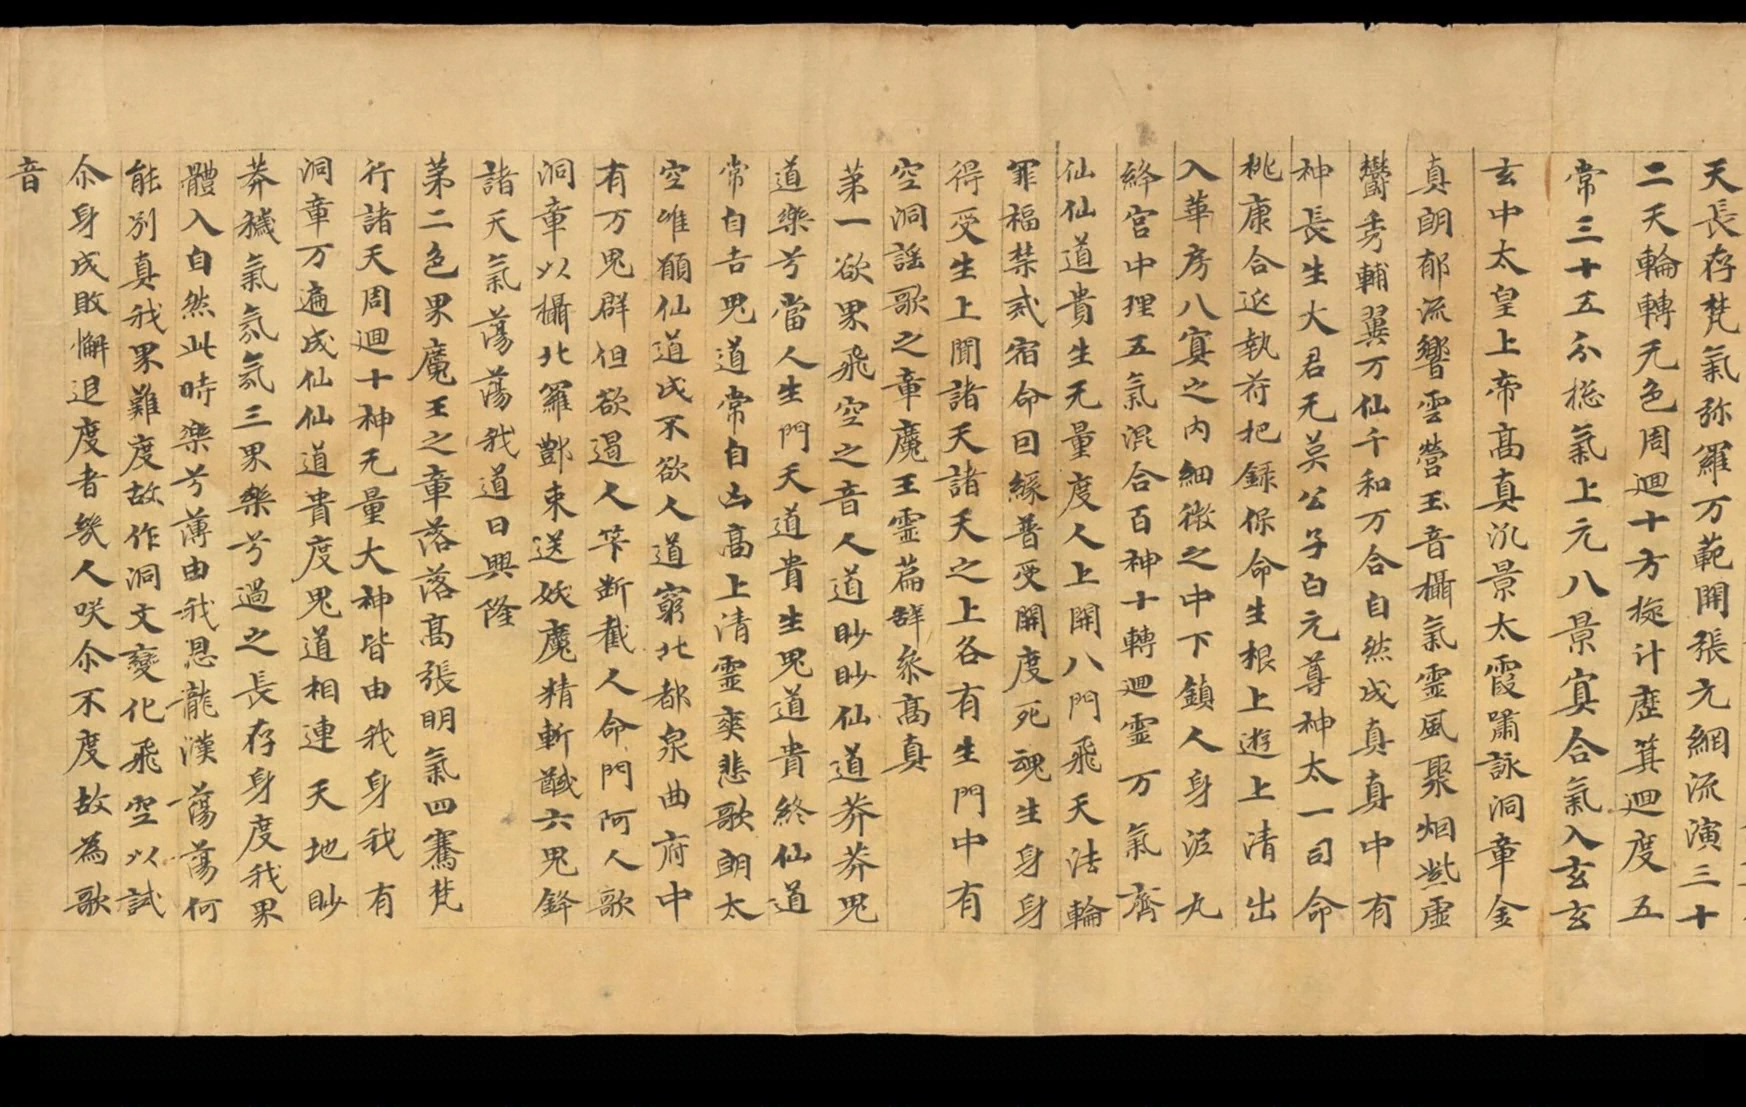 天長存梵氣弥羅万範開張元綱流演三十
二天輪轉无色周迴十方旋計歷箕迴度五
常三十五分捴氣上元八景冥合氣入玄玄
玄中太皇上帝髙真汎景太霞嘯詠洞章金
真朗郁流響雲營玉音攝氣靈風聚烟紫虛
鬱秀輔翼万仙千和万合自然成真真中有
神長生大君无英公子白元尊神太一司命
桃康合延執苻把録保命生根上遊上清出
入華房八冥之内細微之中下鎮人身泥丸
絳宫中理五氣混合百神十轉迴靈万氣齊
仙仙道貴生无量度人上開八門飛天法輪
罪福禁戒宿命因緣普受開度死魂生身身
得受生上聞諸天諸天之上各有生門中有
空洞謡歌之章魔王靈篇辞叅髙真
苐一欲界飛空之音人道眇眇仙道莽莽鬼
道樂兮當人生門天道貴生鬼道貴終仙道
常自吉鬼道常自凶髙上清靈爽悲歌朗太
空唯願仙道成不欲人道窮北都泉曲府中
有万鬼群但欲遏人筭斷截人命門阿人歌
洞章以攝北羅酆束送妖魔精斬馘六鬼鋒
諸天氣蕩蕩我道日興隆
苐二色界魔王之章落落髙張明氣四騫梵
行諸天周迴十神无量大神皆由我身我有
洞章万遍成仙仙道貴度鬼道相連天地眇
莽穢氣氛氛三界樂兮過之長存身度我界
體入自然此時樂兮薄由我恩龍漢蕩蕩何
能別真我界難度故作洞文變化飛空以試
尒身成敗懈退度者幾人咲尒不度故為歌
音